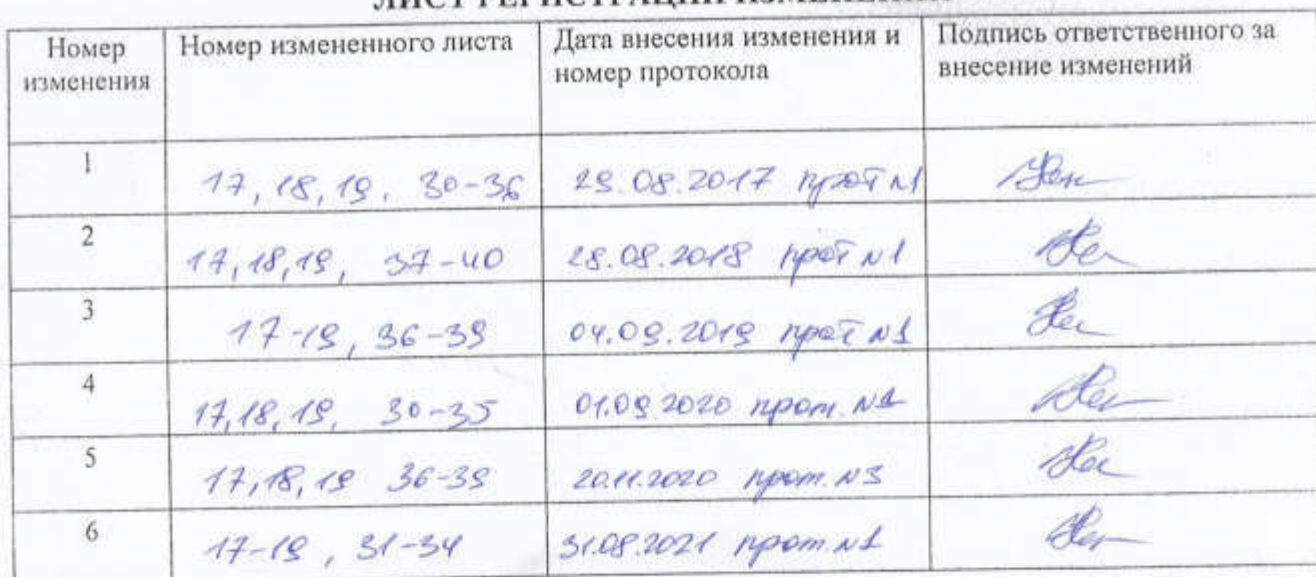 ЛИСТ РЕГИСТРАЦИИ ИЗМЕНЕНИЙ
Номер изменения Номер измененного листа Дата внесения изменения и номер протокола Подпись ответственного за внесение изменений
1 17, 18, 19, 30-36 29.08.2017 прот №1
2 17, 18, 19, 37-40 28.08.2018 прот №1
3 17-19, 36-39 04.09.2019 прот №1
4 17, 18, 19, 30-35 01.09 2020 прот. №1
5 17, 18, 19 36-39 20.11.2020 прот. №3
6 17-19, 31-34 31.08.2021 прот. №1